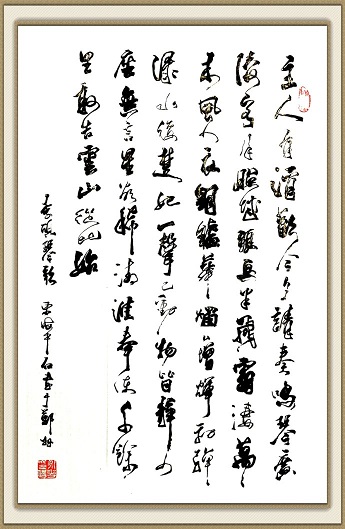 主人有酒歡今夕請奏鳴琴廣
陵客月照城頭烏半飛霜淒萬
木風入衣銅爐華燭燭增輝初彈
淥水後楚妃一聲已動物皆靜四
座無言星欲稀清淮奉使千餘
里敢告雲山從此始
李頎琴歌 書于鄭州